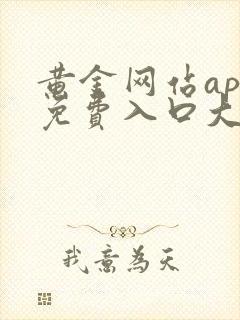 黄金网佔ap
免費入口大
我意為天